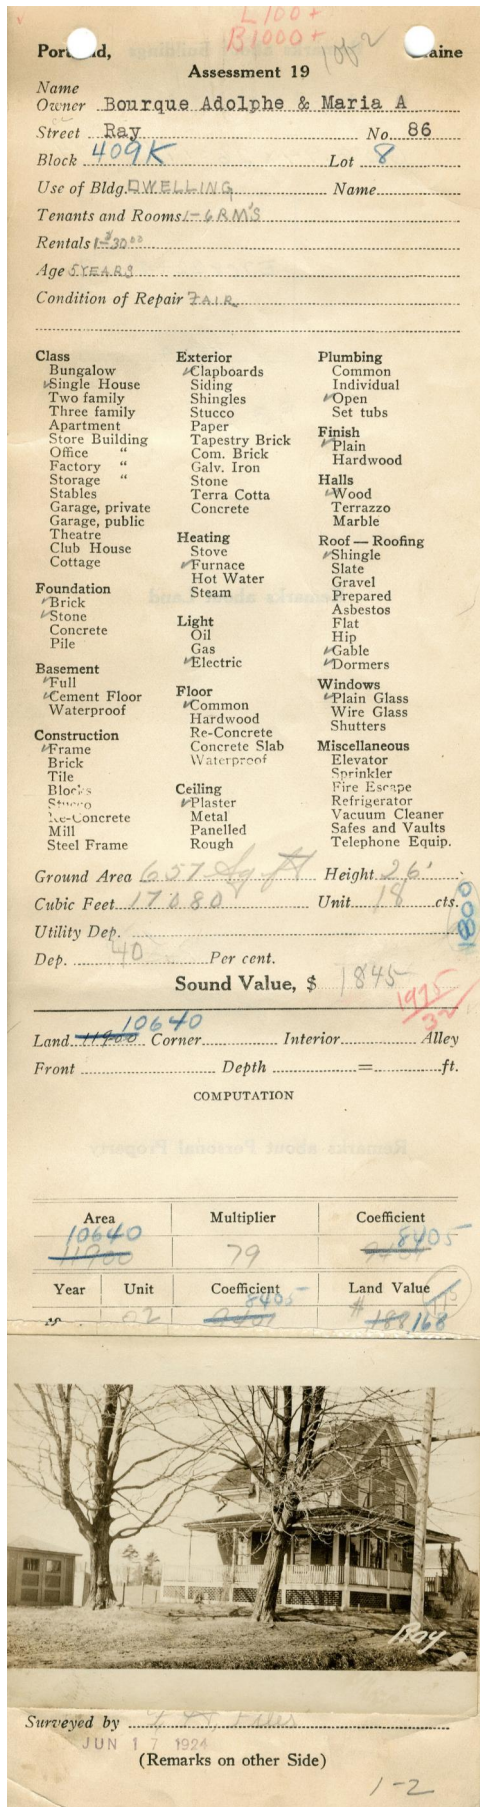 L 100+
B 1000+
1 of 2
Portland, Maine
Assessment 19
Name
Owner Bourque Adolphe & Maria A
Street Ray No. 86
Block 409K Lot 8
Use of Bldg. DWELLING Name
Tenants and Rooms 1-6 RM'S
Rentals 1-$30.00
Age 5 YEARS
Condition of Repair FAIR
Class
Bungalow
✓Single House
Two family
Three family
Apartment
Store Building
Office "
Factory "
Storage "
Stables
Garage, private
Garage, public
Theatre
Club House
Cottage
Foundation
✓Brick
✓Stone
Concrete
Pile
Basement
✓Full
✓Cement Floor
Waterproof
Construction
✓Frame
Brick
Tile
Blocks
Stucco
Re-Concrete
Mill
Steel Frame
Exterior
✓Clapboards
Siding
Shingles
Stucco
Paper
Tapestry Brick
Com. Brick
Galv. Iron
Stone
Terra Cotta
Concrete
Heating
Stove
✓Furnace
Hot Water
Steam
Light
Oil
Gas
✓Electric
Floor
✓Common
Hardwood
Re-Concrete
Concrete Slab
Waterproof
Ceiling
✓Plaster
Metal
Panelled
Rough
Plumbing
Common
Individual
✓Open
Set tubs
Finish
✓Plain
Hardwood
Halls
✓Wood
Terrazzo
Marble
Roof — Roofing
✓Shingle
Slate
Gravel
Prepared
Asbestos
Flat
Hip
✓Gable
✓Dormers
Windows
✓Plain Glass
Wire Glass
Shutters
Miscellaneous
Elevator
Sprinkler
Fire Escape
Refrigerator
Vacuum Cleaner
Safes and Vaults
Telephone Equip.
Ground Area 657 Sq ft Height 26'
Cubic Feet 17080 Unit 18 cts.
1800
Utility Dep.
Dep. 40 Per cent.
Sound Value, $ 1845
1975/32
10640
Land 11900 Corner Interior Alley
Front Depth = ft.
COMPUTATION
Area Multiplier Coefficient
10640 8405
11900 79 9401
Year Unit Coefficient Land Value
8405
02 9401 $ 188 168
Ray
Surveyed by
JUN 17 1924
(Remarks on other Side)
1-2